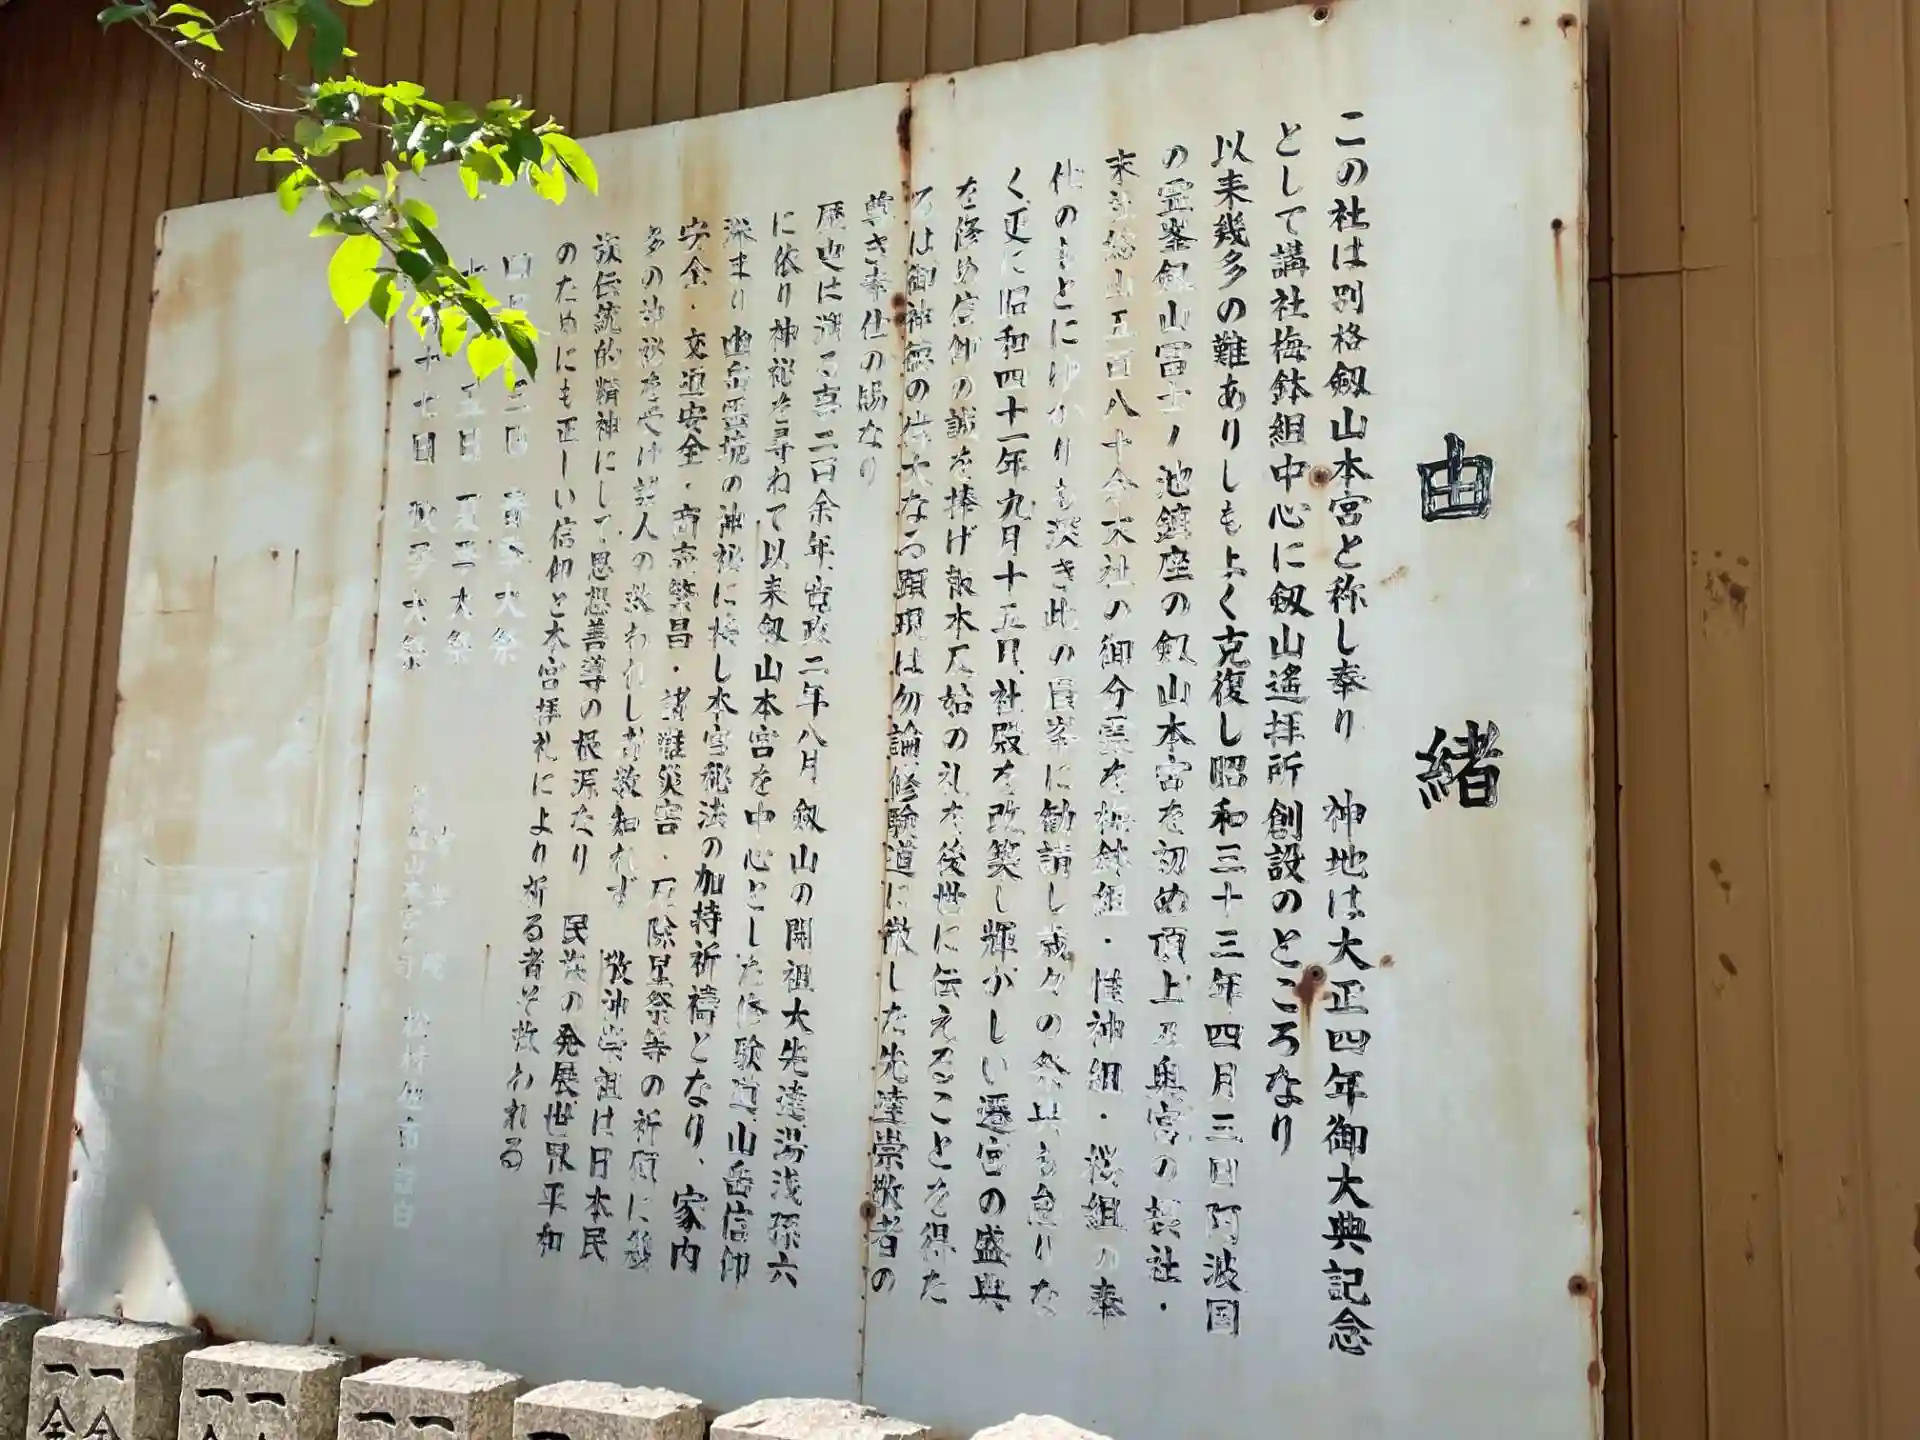 由緒
この社は別格劔山本宮と称し奉り 神地は大正四年御大典記念
として講社梅鉢組中心に劔山遙拝所創設のところなり
以来幾多の難ありしもよく克復し昭和三十三年四月三日阿波国
の霊峯劔山冨士ノ池鎮座の劔山本宮を初め頂上及奥宮の摂社・
末社総山五百八十余末社の御分霊を梅鉢組・惟神組・桜組の奉
仕のもとにゆかりも深き此の眉峯に勧請し歳々の祭典も怠りな
く更に旧和四十一年九月十五日社殿を改築し輝かしい遷宮の盛典
を修め信仰の誠を捧げ報本反始の礼を後世に伝えることを得た
るは御神徳の偉大なる顕現は勿論修験道に徹した先達崇敬者の
尊き奉仕の賜なり
歴史は溯る事二百余年寛政二年八月劔山の開祖大先達湯浅孫六
に依り神秘を尋ねて以来劔山本宮を中心とした修験道山岳信仰
深まり幽岳霊境の神秘に接し本宮秘法の加持祈禱となり、家内
安全・交通安全・商売繁昌・諸難災害・厄除星祭等の祈願に幾
多の神秘を受け諸人の救われし者数知れず 敬神崇祖は日本民
族伝統的精神にして思想善導の根源なり 民族の発展世界平和
のためにも正しい信仰と本宮拝礼により祈る者ぞ救われる
大祭
五日 夏季大祭
十七日 秋季大祭
劔山本宮宮司 松村